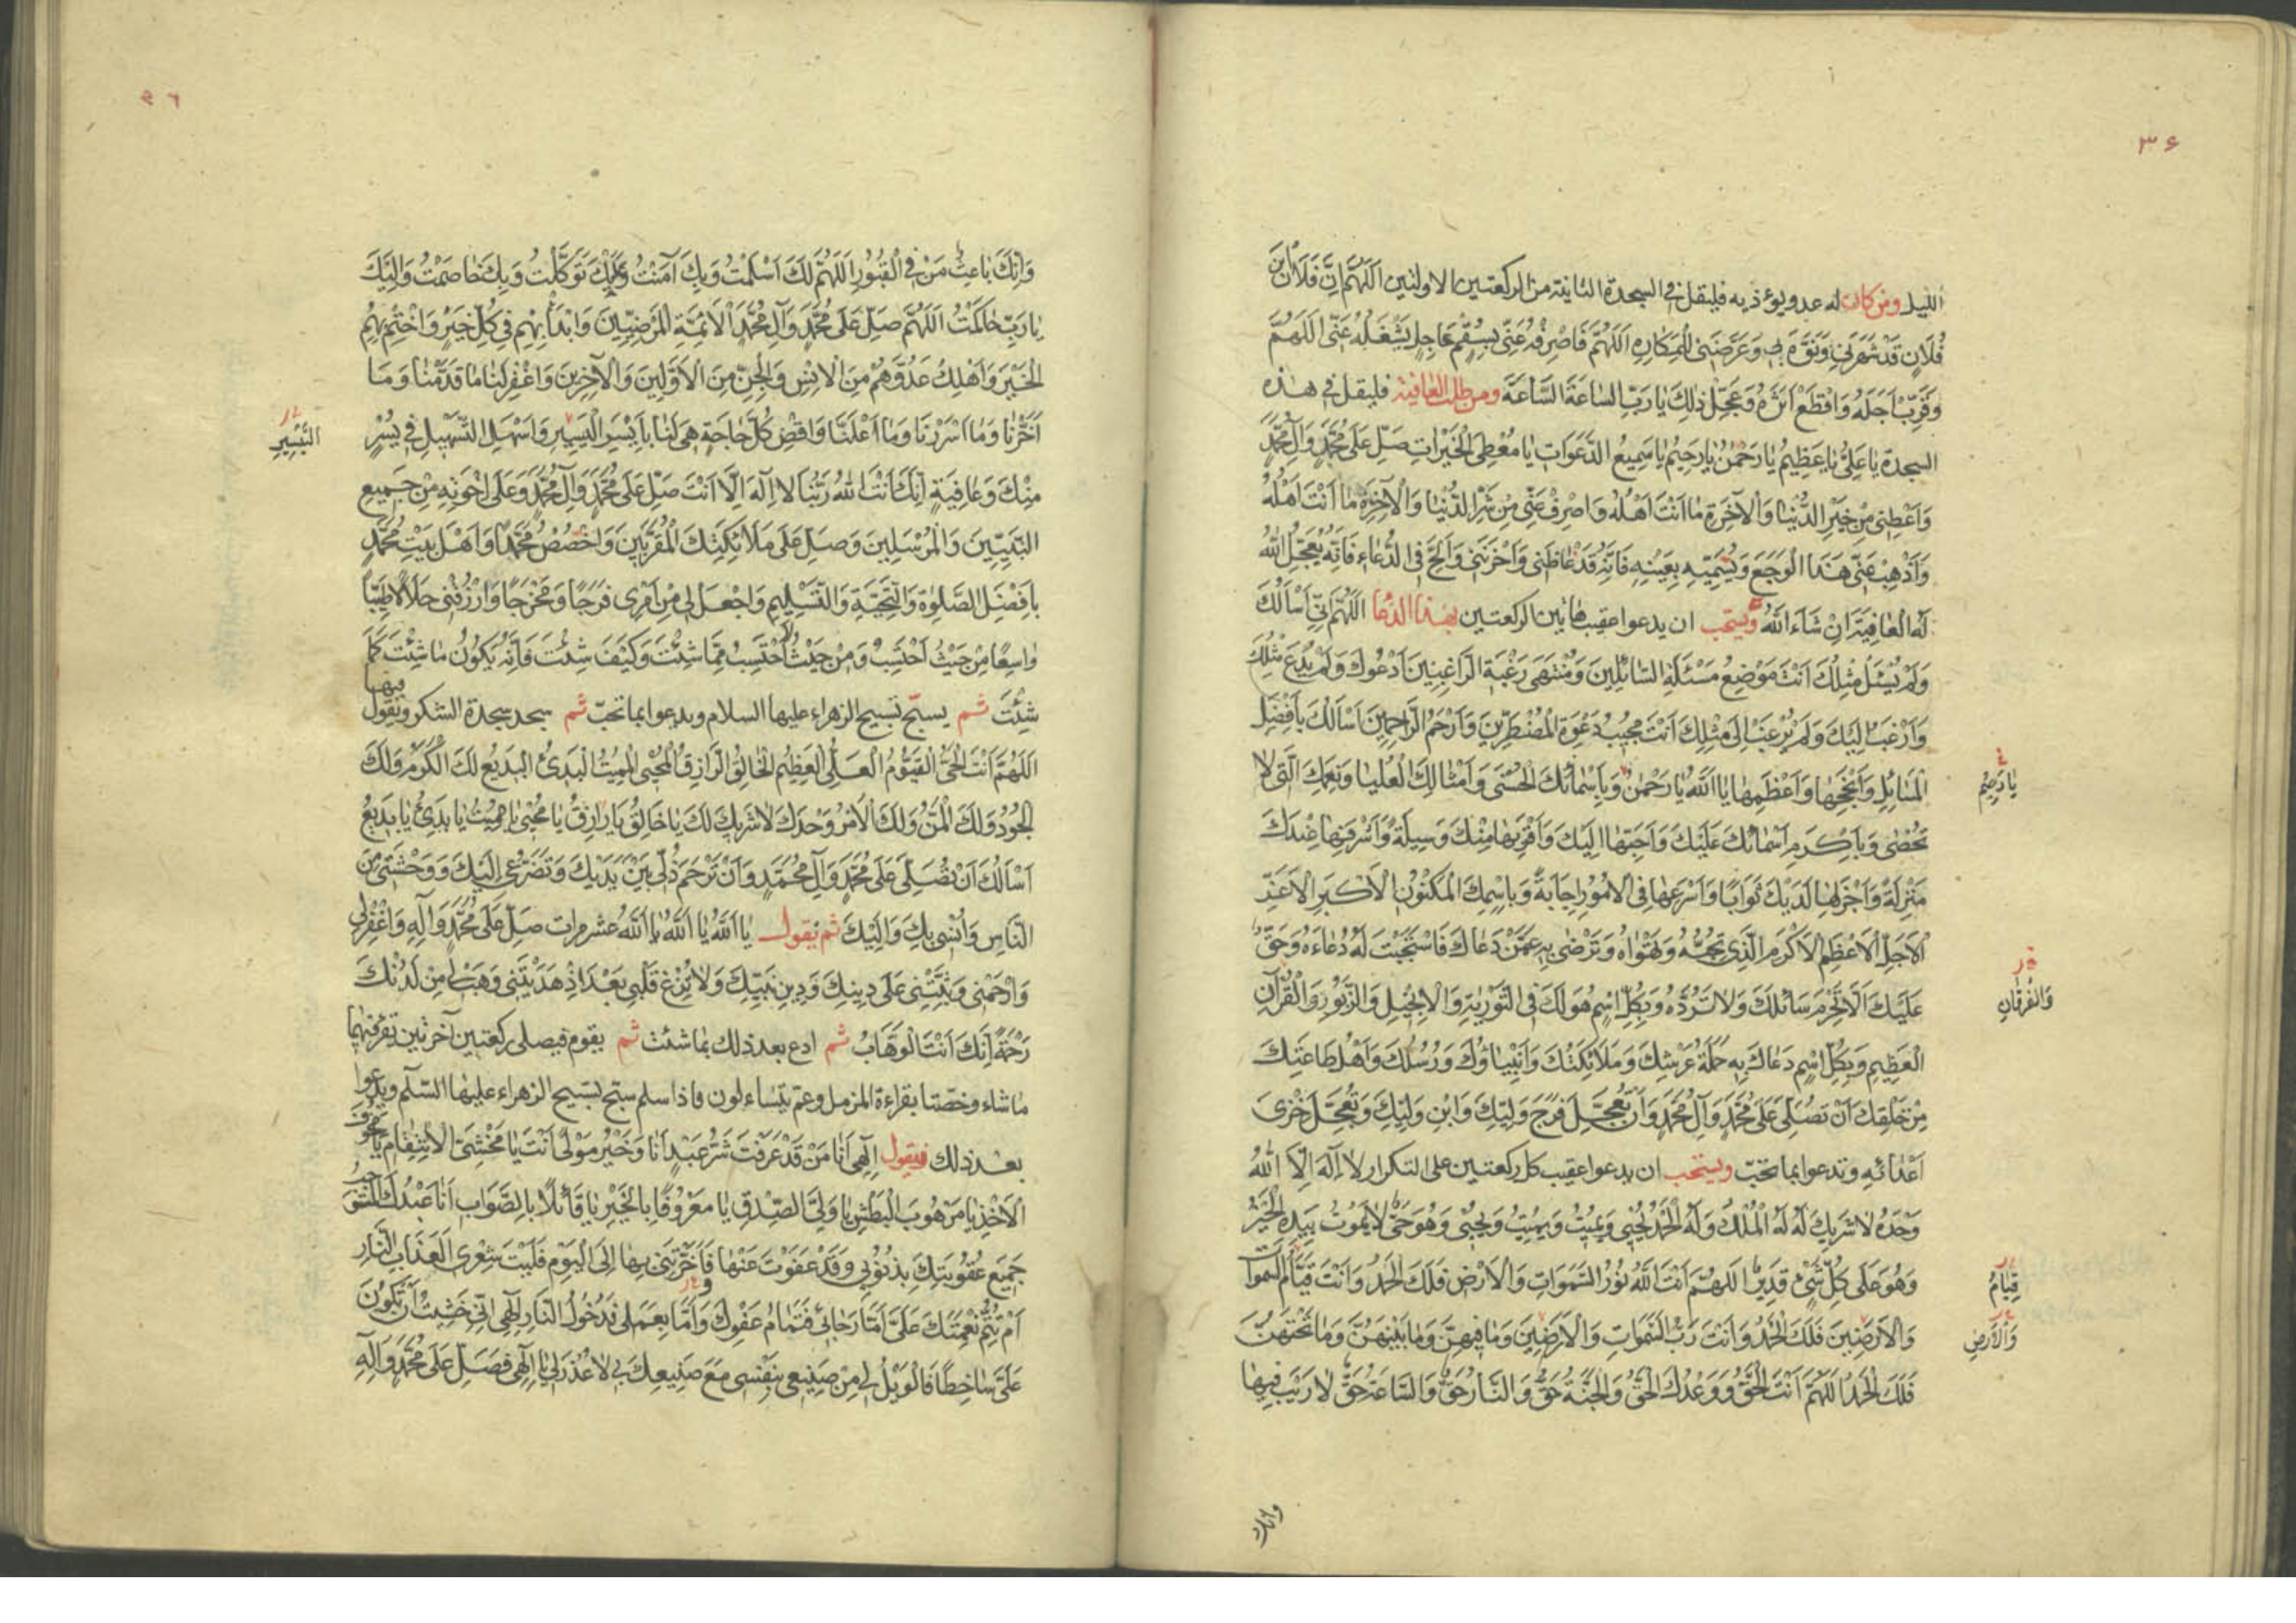 ٣۶
الليل ومن كان له عدو يوءذيه فليقل في السجدة الثانية من الركعتين الاولتين اَللّهُمَّ اِنَّ فَلَانَ بْنَ
فُلَانٍ قَدْ شَهَرَنِي وَنَوَّهَ بِي وَعَرَّضَنِي لِلْمَكَارِهِ اَللّهُمَّ فَاصْرِفْهُ عَنِّي بِسُقْمٍ عَاجِلٍ يَشْغَلُهُ عَنِّي اَللّهُمَّ
وَقَرِّبْ اَجَلَهُ وَاقْطَعْ اَثَرَهُ وَعَجِّلْ ذلِكَ يَا رَبِّ السَّاعَةَ السَّاعَةَ ومن طلب العافية فليقل في هذه
السجدة يَا عَلِيُّ يَا عَظِيمُ يَا رَحْمنُ يَا رَحِيمُ يَا سَمِيعَ الدَّعَوَاتِ يَا مُعْطِيَ الْخَيْرَاتِ صَلِّ عَلَى مُحَمَّدٍ وَآلِ مُحَمَّدٍ
وَاَعْطِنِي مِنْ خَيْرِ الدُّنْيَا وَالْآخِرَةِ مَا اَنْتَ اَهْلُهُ وَاصْرِفْ عَنِّي مِنْ شَرِّ الدُّنْيَا وَالْآخِرَةِ مَا اَنْتَ اَهْلُهُ
وَاَذْهِبْ عَنِّي هَذَا الْوَجَعَ وَيُسَمِّيهِ بِعَيْنِهِ فَاِنَّهُ قَدْ غَاظَنِي وَاَحْزَنَنِي وَاَلِحَّ فِي الدُّعَاءِ فَاِنَّهُ يُعَجِّلُ اللهُ
لَهُ الْعَافِيَةَ اِنْ شَاءَ اللهُ ويستحب ان يدعوا عقيب هاتين الركعتين بهذا الدعا اَللّهُمَّ اِنِّي اَسْأَلُكَ
وَلَمْ يُسْئَلْ مِثْلُكَ اَنْتَ مَوْضِعُ مَسْئَلَةِ السَّائِلِينَ وَمُنْتَهَى رَغْبَةِ الرَّاغِبِينَ اَدْعُوكَ وَلَمْ يُدْعَ مِثْلُكَ
وَاَرْغَبُ اِلَيْكَ وَلَمْ يُرْغَبْ اِلَى مِثْلِكَ اَنْتَ مُجِيبُ دَعْوَةِ الْمُضْطَرِّينَ وَاَرْحَمُ الرَّاحِمِينَ اَسْأَلُكَ بِاَفْضَلِ
الْمَسَائِلِ وَاَنْجَحِهَا وَاَعْظَمِهَا يَا اَللهُ يَا رَحْمنُ وَبِاَسْمَائِكَ الْحُسْنَى وَاَمْثَالِكَ الْعُلْيَا وَنِعَمِكَ الَّتِي لَا
يَا رَحِيمُ
تُحْصَى وَبِاَكْرَمِ اَسْمَائِكَ عَلَيْكَ وَاَحَبِّهَا اِلَيْكَ وَاَقْرَبِهَا مِنْكَ وَسِيلَةً وَاَشْرَفِهَا عِنْدَكَ
مَنْزِلَةً وَاَجْزَلِهَا لَدَيْكَ ثَوَابًا وَاَسْرَعِهَا فِي الْاُمُورِ اِجَابَةً وَبِاسْمِكَ الْمَكْنُونِ الْاَكْبَرِ الْاَعَزِّ
الْاَجَلِّ الْاَعْظَمِ الْاَكْرَمِ الَّذِي تُحِبُّهُ وَتَهْوَاهُ وَتَرْضَى بِهِ عَمَّنْ دَعَاكَ فَاسْتَجَبْتَ لَهُ دُعَاءَهُ وَحَقٌّ
عَلَيْكَ اَلَّا تَحْرِمَ سَائِلَكَ وَلَا تَرُدَّهُ وَبِكُلِّ اسْمٍ هُوَ لَكَ فِي التَّوْرَيةِ وَالْاِنْجِيلِ وَالزَّبُورِ وَالْقُرْآنِ
وَالْفُرْقَانِ
الْعَظِيمِ وَبِكُلِّ اسْمٍ دَعَاكَ بِهِ حَمَلَةُ عَرْشِكَ وَمَلَائِكَتُكَ وَاَنْبِيَاؤُكَ وَرُسُلُكَ وَاَهْلُ طَاعَتِكَ
مِنْ خَلْقِكَ اَنْ تُصَلِّيَ عَلَى مُحَمَّدٍ وَآلِ مُحَمَّدٍ وَاَنْ تُعَجِّلَ فَرَجَ وَلِيِّكَ وَابْنِ وَلِيِّكَ وَتُعَجِّلَ خِزْيَ
اَعْدَائِهِ وتدعوا بما تحبّ ويستحب ان يدعوا عقيب كل ركعتين على التكرار لَا اِلهَ اِلَّا اللهُ
وَحْدَهُ لَا شَرِيكَ لَهُ لَهُ الْمُلْكُ وَلَهُ الْحَمْدُ يُحْيِي وَيُمِيتُ وَيُمِيتُ وَيُحْيِي وَهُوَ حَيٌّ لَا يَمُوتُ بِيَدِهِ الْخَيْرُ
وَهُوَ عَلَى كُلِّ شَيْءٍ قَدِيرٌ اَللّهُمَّ اَنْتَ اللهُ نُورُ السَّمَوَاتِ وَالْاَرْضِ فَلَكَ الْحَمْدُ وَاَنْتَ قَيَّامُ السَّمَوَاتِ
قِيَامُ
وَالْاَرَضِينَ فَلَكَ الْحَمْدُ وَاَنْتَ رَبُّ السَّمَوَاتِ وَالْاَرَضِينَ وَمَا فِيهِنَّ وَمَا بَيْنَهُنَّ وَمَا تَحْتَهُنَّ
وَالْاَرْضِ
فَلَكَ الْحَمْدُ اَللّهُمَّ اَنْتَ الْحَقُّ وَوَعْدُكَ الْحَقُّ وَالْجَنَّةُ حَقٌّ وَالنَّارُ حَقٌّ وَالسَّاعَةُ حَقٌّ لَا رَيْبَ فِيهَا
وانك
وَاِنَّكَ بَاعِثُ مَنْ فِي الْقُبُورِ اَللّهُمَّ لَكَ اَسْلَمْتُ وَبِكَ آمَنْتُ وَعَلَيْكَ تَوَكَّلْتُ وَبِكَ خَاصَمْتُ وَاِلَيْكَ
يَا رَبِّ حَاكَمْتُ اَللّهُمَّ صَلِّ عَلَى مُحَمَّدٍ وَآلِ مُحَمَّدٍ اَلْاَئِمَّةِ الْمَرْضِيِّينَ وَابْدَأْ بِهِمْ فِي كُلِّ خَيْرٍ وَاخْتِمْ بِهِمُ
الْخَيْرَ وَاَهْلِكْ عَدُوَّهُمْ مِنَ الْاِنْسِ وَالْجِنِّ مِنَ الْاَوَّلِينَ وَالْآخِرِينَ وَاغْفِرْ لَنَا مَا قَدَّمْنَا وَمَا
اَخَّرْنَا وَمَا اَسْرَرْنَا وَمَا اَعْلَنَّا وَاقْضِ كُلَّ حَاجَةٍ هِيَ لَنَا بِاَيْسَرِ الْيَسِيرِ وَاَسْهَلِ التَّسْهِيلِ فِي يُسْرٍ
التَّيْسِيرِ
مِنْكَ وَعَافِيَةٍ اِنَّكَ اَنْتَ اللهُ رَبُّنَا لَا اِلهَ اِلَّا اَنْتَ صَلِّ عَلَى مُحَمَّدٍ وَآلِ مُحَمَّدٍ وَعَلَى اِخْوَتِهِ مِنْ جَمِيعِ
النَّبِيِّينَ وَالْمُرْسَلِينَ وَصَلِّ عَلَى مَلَائِكَتِكَ الْمُقَرَّبِينَ وَاخْصُصْ مُحَمَّدًا وَاَهْلَ بَيْتِ مُحَمَّدٍ
بِاَفْضَلِ الصَّلوةِ وَالتَّحِيَّةِ وَالتَّسْلِيمِ وَاجْعَلْ لِي مِنْ اَمْرِي فَرَجًا وَمَخْرَجًا وَارْزُقْنِي حَلَالًا طَيِّبًا
وَاسِعًا مِنْ حَيْثُ اَحْتَسِبُ وَمِنْ حَيْثُ لَا اَحْتَسِبُ مِمَّا شِئْتَ وَكَيْفَ شِئْتَ فَاِنَّهُ يَكُونُ مَا شِئْتَ كَمَا
شِئْتَ ثم يسبّح تسبيح الزهراء عليها السلام ويدعوا بما تحبّ ثم يسجد سجدة الشكر وتقول فيها
اَللّهُمَّ اَنْتَ الْحَيُّ الْقَيُّومُ الْعَلِيُّ الْعَظِيمُ الْخَالِقُ الرَّازِقُ الْمُحْيِي الْمُمِيتُ الْبَدِيُّ الْبَدِيعُ لَكَ الْكَرَمُ وَلَكَ
الْجُودُ وَلَكَ الْمَنُّ وَلَكَ الْاَمْرُ وَحْدَكَ لَا شَرِيكَ لَكَ يَا خَالِقُ يَا رَازِقُ يَا مُحْيِي يَا مُمِيتُ يَا بَدِيُّ يَا بَدِيعُ
اَسْأَلُكَ اَنْ تُصَلِّيَ عَلَى مُحَمَّدٍ وَآلِ مُحَمَّدٍ وَاَنْ تَرْحَمَ ذُلِّي بَيْنَ يَدَيْكَ وَتَضَرُّعِي اِلَيْكَ وَوَحْشَتِي مِنَ
النَّاسِ وَاُنْسِي بِكَ وَاِلَيْكَ ثم يقول يَا اَللهُ يَا اَللهُ يَا اَللهُ عشر مرات صَلِّ عَلَى مُحَمَّدٍ وَآلِهِ وَاغْفِرْ لِي
وَارْحَمْنِي وَثَبِّتْنِي عَلَى دِينِكَ وَدِينِ نَبِيِّكَ وَلَا تُزِغْ قَلْبِي بَعْدَ اِذْ هَدَيْتَنِي وَهَبْ لِي مِنْ لَدُنْكَ
رَحْمَةً اِنَّكَ اَنْتَ الْوَهَّابُ ثم ادع بعد ذلك بما شئت ثم يقوم فيصلي ركعتين آخرتين تقرء فيهما
ما شاء وخصّتا بقراءة المزمل وعم يتساءلون فاذا سلم سبح تسبيح الزهراء عليها السّلم ويدعوا
بعد ذلك فيقول اِلهِي اَنَا مَنْ قَدْ عَرَفْتَ شَرُّ عَبْدٍ اَنَا وَخَيْرُ مَوْلًى اَنْتَ يَا مَخْشِيَّ الْاِنْتِقَامِ يَا مَخُوفَ
الْاَخْذِ يَا مَرْهُوبَ الْبَطْشِ يَا وَلِيَّ الصِّدْقِ يَا مَعْرُوفًا بِالْخَيْرِ يَا قَائِلًا بِالصَّوَابِ اَنَا عَبْدُكَ الْمُسْتَوْجِبُ
جَمِيعَ عُقُوبَتِكَ بِذُنُوبِي وَقَدْ عَفَوْتَ عَنْهَا فَاَخَّرْتَنِي بِهَا اِلَى الْيَوْمِ فَلَيْتَ شِعْرِي اَلِعَذَابِ النَّارِ
اَمْ تُتِمُّ نِعْمَتَكَ عَلَيَّ اَمَّا رَجَائِي فَتَمَامُ عَفْوِكَ وَاَمَّا بِعَمَلِي فَدُخُولُ النَّارِ اِلهِي اِنِّي خَشِيتُ اَنْ تَكُونَ
عَلَيَّ سَاخِطًا فَالْوَيْلُ لِي مِنْ صَنِيعِي بِنَفْسِي مَعَ صَنِيعِكَ بِي لَا عُذْرَ لِي يَا اِلهِي فَصَلِّ عَلَى مُحَمَّدٍ وَآلِهِ